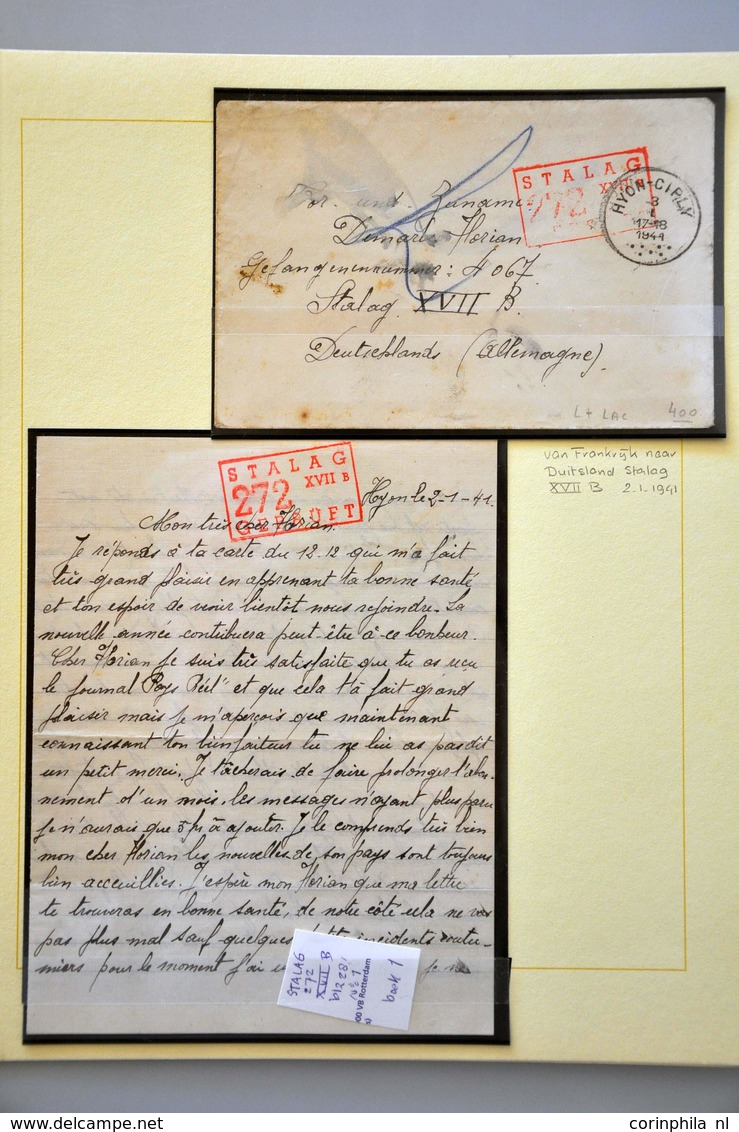 STALAG
272 XVII B
HYON-CIPLY
-3
1
17-18
1941
Vor. und. Zuname:
Demart Florian
Gefangenennummer: 4067.
Stalag XVII B.
Deutschlands (Allemagne).
L+ LAC 400
van Frankrijk naar
Duitsland Stalag
XVII B 2.1.1941
STALAG
272 XVII B
GEPRÜFT
Hyon le 2-1-41.
Mon très cher Florian.
Je réponds à ta carte du 18.12 qui m'a fait
très grand plaisir en apprenant ta bonne santé
et ton espoir de venir bientôt nous rejoindre. La
nouvelle année contribuera peut-être à ce bonheur.
Cher Florian je suis très satisfaite que tu as reçu
le journal "Pays Réel" et que cela t'a fait grand
plaisir mais je m'aperçois que maintenant
connaissant ton bienfaiteur tu ne lui as pas dit
un petit merci. Je tâcherais de faire prolonger l'abon-
nement d'un mois, les messages n'ayant plus paru
je n'aurais que 5 frs à ajouter. Je le comprends très bien
mon cher Florian les nouvelles de son pays sont toujours
bien acceuillies. J'espère mon Florian que ma lettre
te trouveras en bonne santé, de notre côté cela ne va
pas plus mal sauf quelques incidents coutu-
miers pour le moment j'ai je ne
STALAG
272
XVII B
b12281
N° 1
00 VB Rotterdam
boek 1
corinphila nl